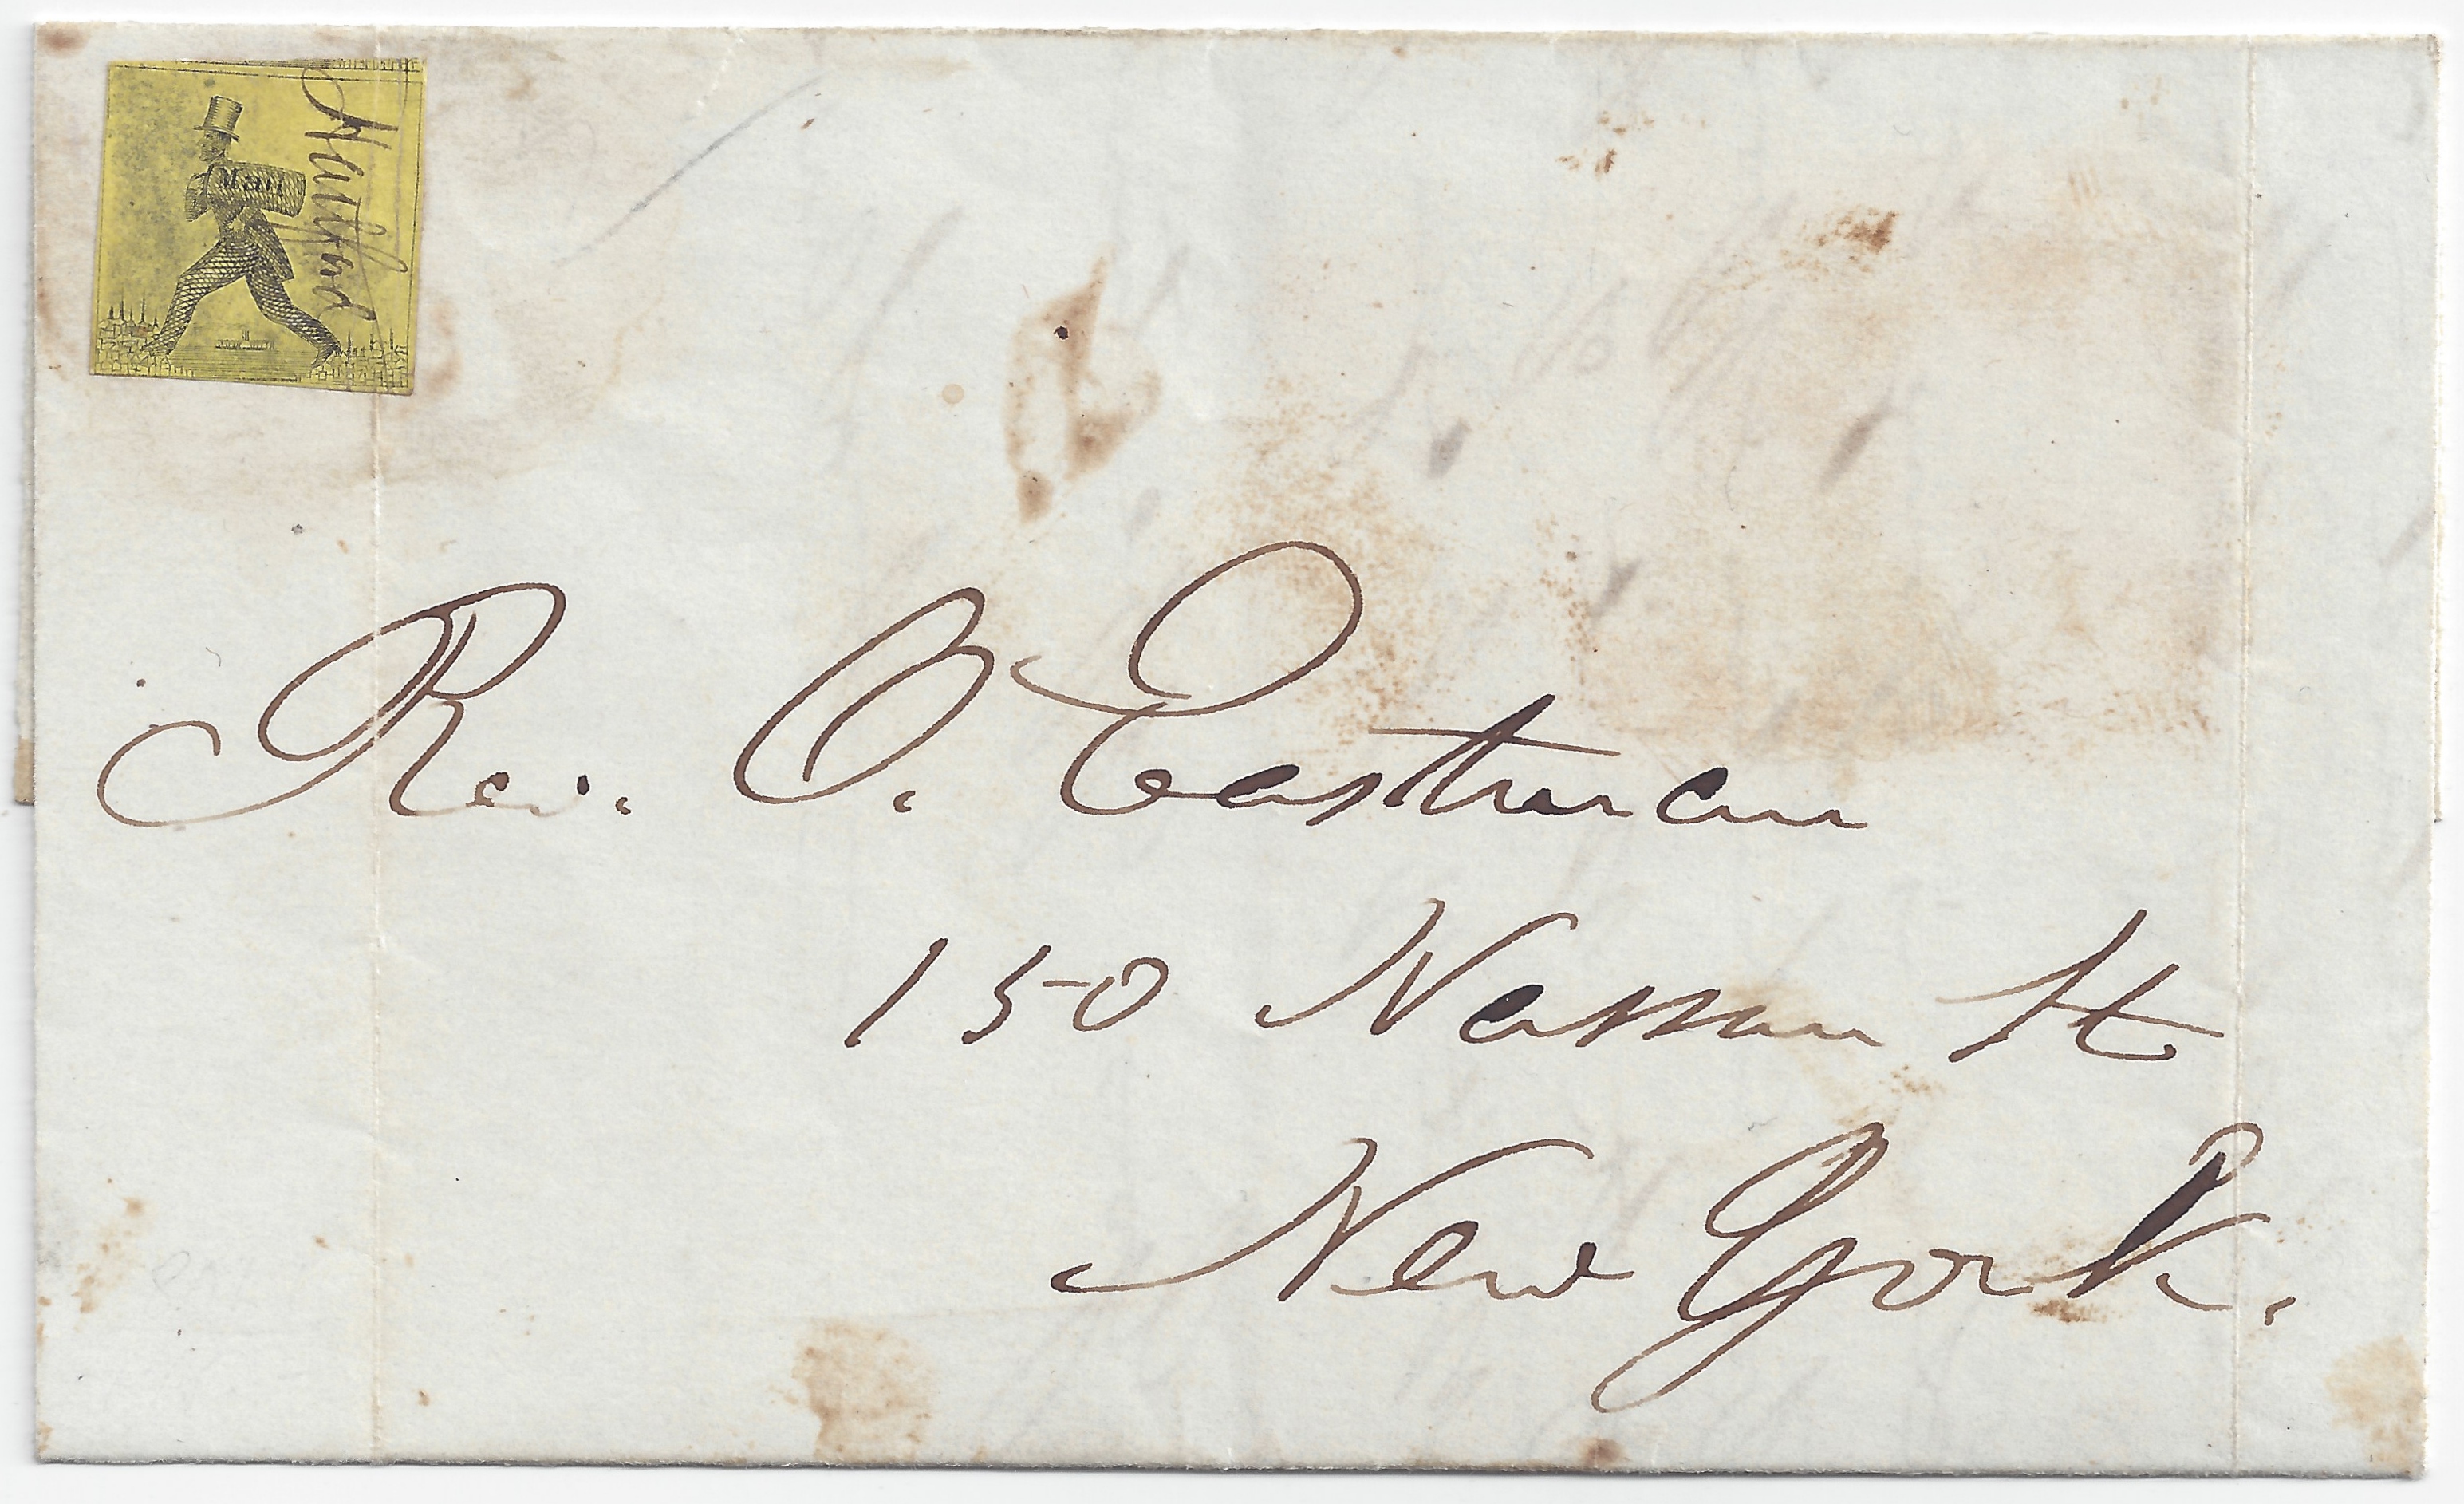 Mail
Hartford
Rev. O. Eastman
150 Nassau St
New York.